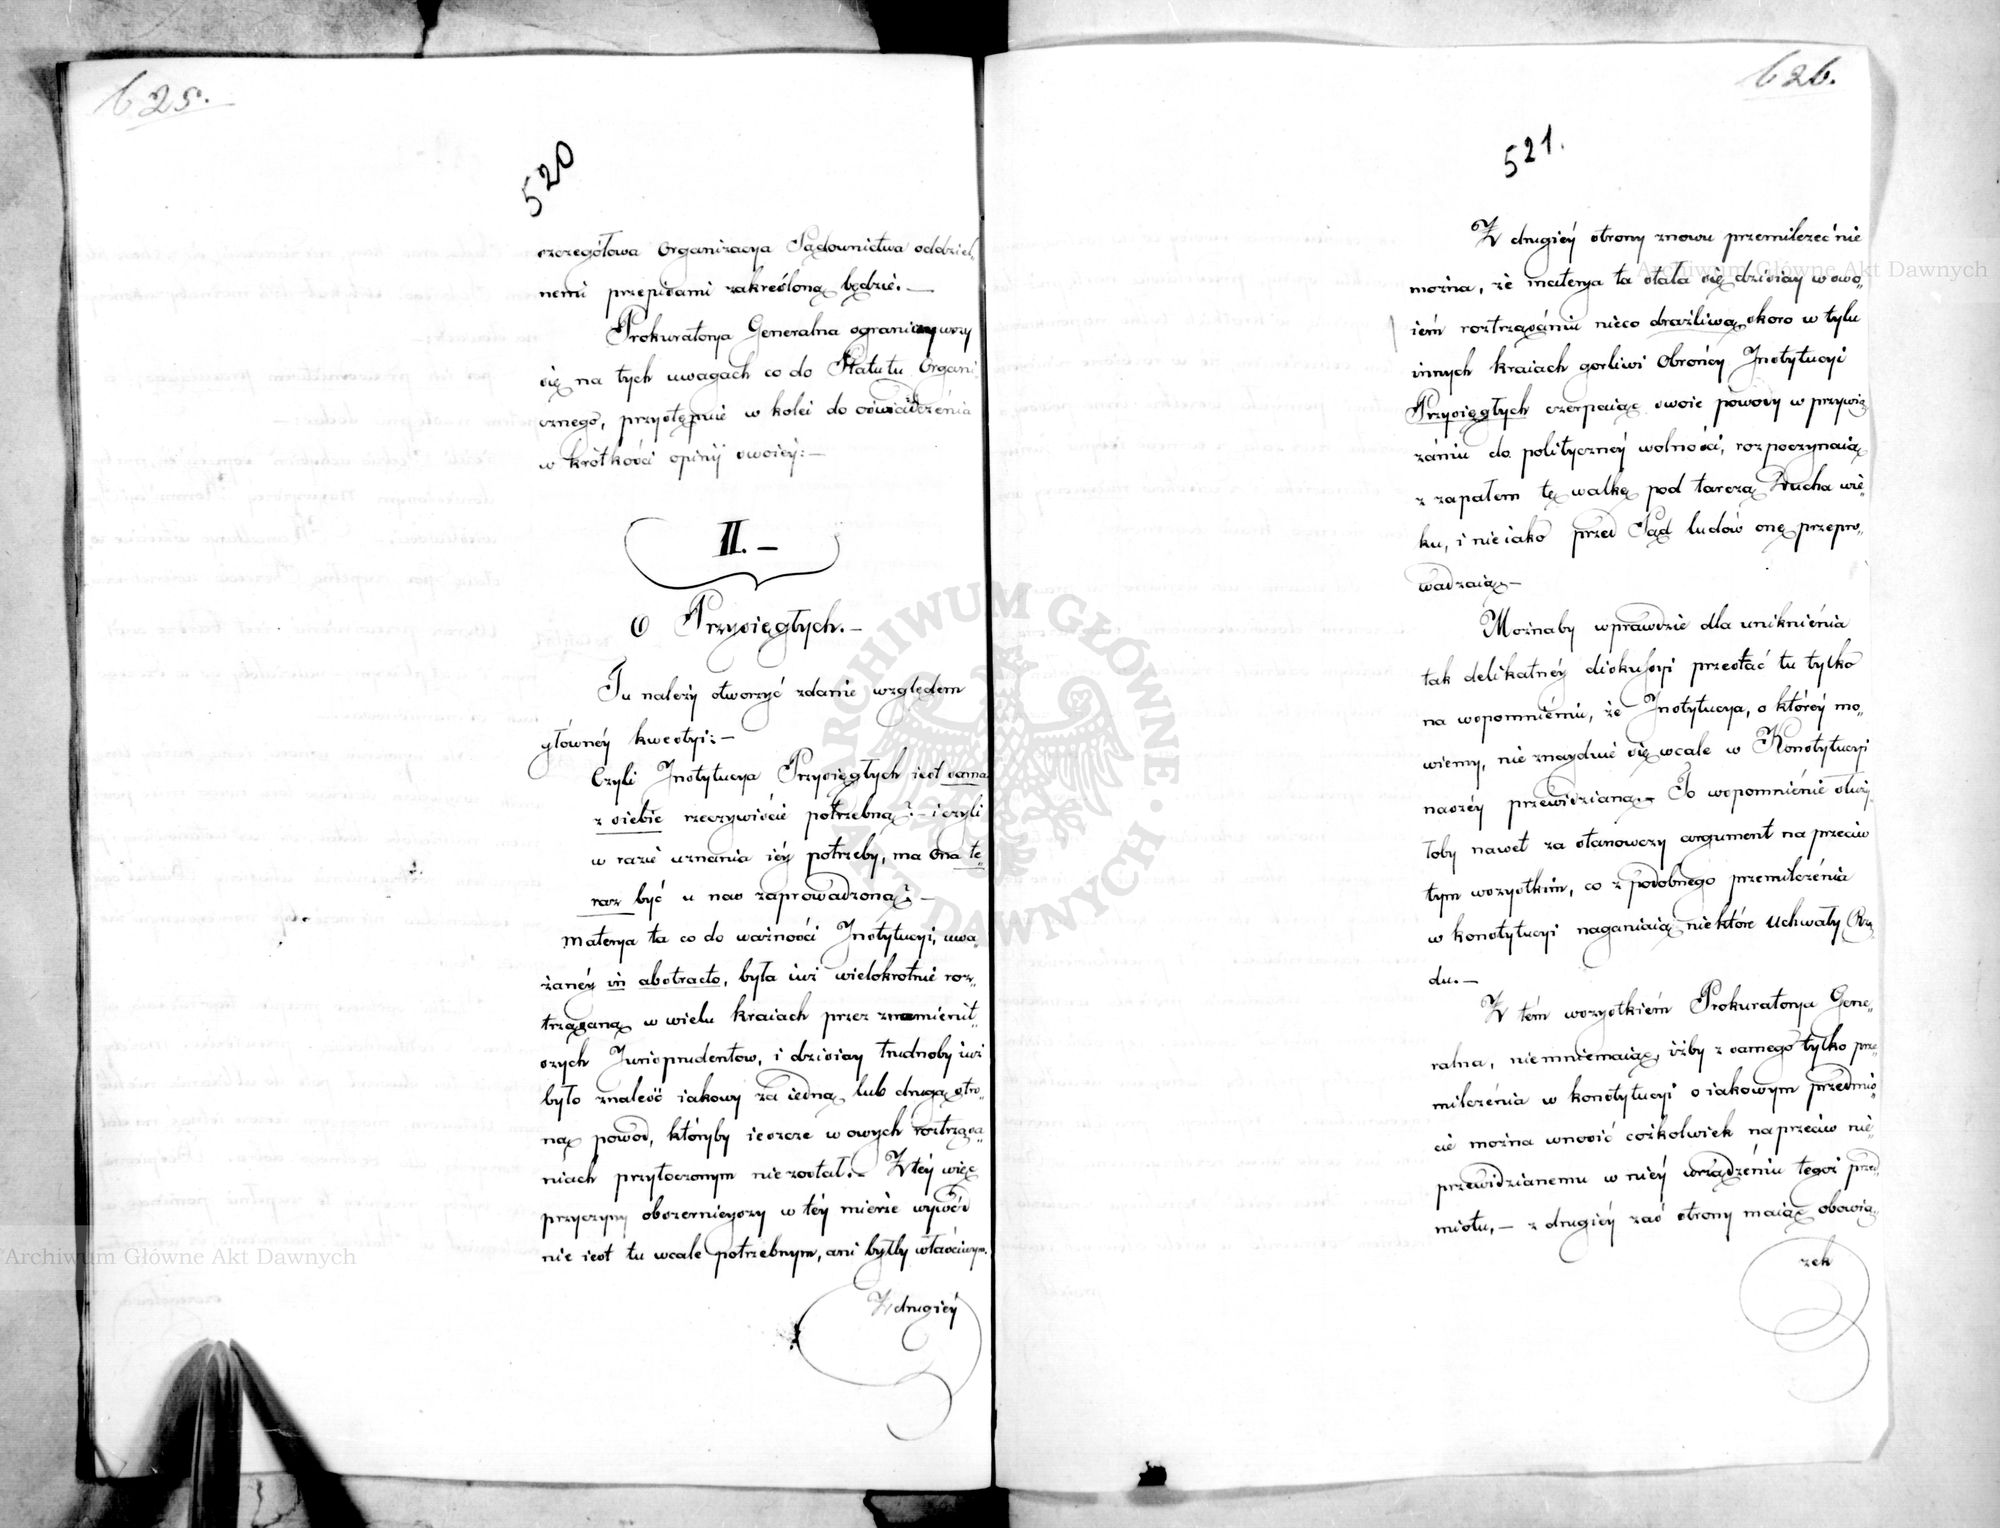 625.
520
szczegółowa Organizacya Sądownictwa oddziel„
nemi przepisami zakreśloną będzie. —
Prokuratorya Generalna ograniczywszy
się na tych uwagach co do Statutu Organi„
cznego, przystępuie w kolei do oświadczenia
w krótkości opinij swoiey: —
II. —
O Przysięgłych. —
Tu należy otworzyć zdanie względem
głowney kwestyi: —
Czyli Instytucya Przysięgłych iest sama
z siebie rzeczywiście potrzebną? — i czyli
w razie uznania iéy potrzeby, ma ona te„
raz być u nas zaprowadzoną? —
Materya ta co do ważności Instytucyi, uwa„
żanéy in abstracto, była iuż wielokrotnie roz„
trząsaną w wielu kraiach przez znamienit„
szych Jurisprudentow, i dzisiay trudnoby iuż
było znaleść iakowy za iedną, lub drugą stro„
ną powod, któryby ieszcze w owych roztrząsa„
niach przytoczonym nie został. — Z téy więc
przyczyny obszernieyszy w téy mierze wywód
nie iest tu wcale potrzebnym, ani byłby właściwym.
Z drugiéy
626.
521.
Z drugiéy strony znowu przemilczeć nie
można, że materya ta stała się dzisiay w swo„
iém roztrząsaniu nieco drażliwą, skoro w tylu
innych kraiach gorliwi Obrońcy Instytucyi
Przysięgłych czerpaiąc swoie powody w przywią
zaniu do polityczney wolności, rozpoczynaią
z zapałem tę walkę pod tarczą Ducha wie„
ku, i nieiako przed Sąd ludów onę przepro„
wadzaią. —
Możnaby wprawdzie dla uniknienia
tak delikatnéy diskussyi przestać tu tylko
na wspomnieniu, że Instytucya, o któréy mo„
wiemy, nie znayduie się wcale w Konstytucyi
naszéy przewidzianą. — To wspomnienie służy„
łoby nawet za stanowczy argument naprzeciw
tym wszystkim, co z podobnego przemilczenia
w konstytucyi naganiaią niektóre Uchwały Rzą
du. —
Z tém wszystkiém Prokuratorya Gene„
ralna, niemniemaiąc, iżby z samego tylko prze„
milczenia w konstytucyi o iakowym przedmio„
cie można wnosić cośkolwiek naprzeciw nie„
przewidzianemu w niéy urządzeniu tegoż przed„
miotu, — z drugiéy zaś strony maiąc obowią„
zek
Archiwum Główne Akt Dawnych
Archiwum Główne Akt Dawnych
ARCHIWUM GŁÓWNE · AKT DAWNYCH ·